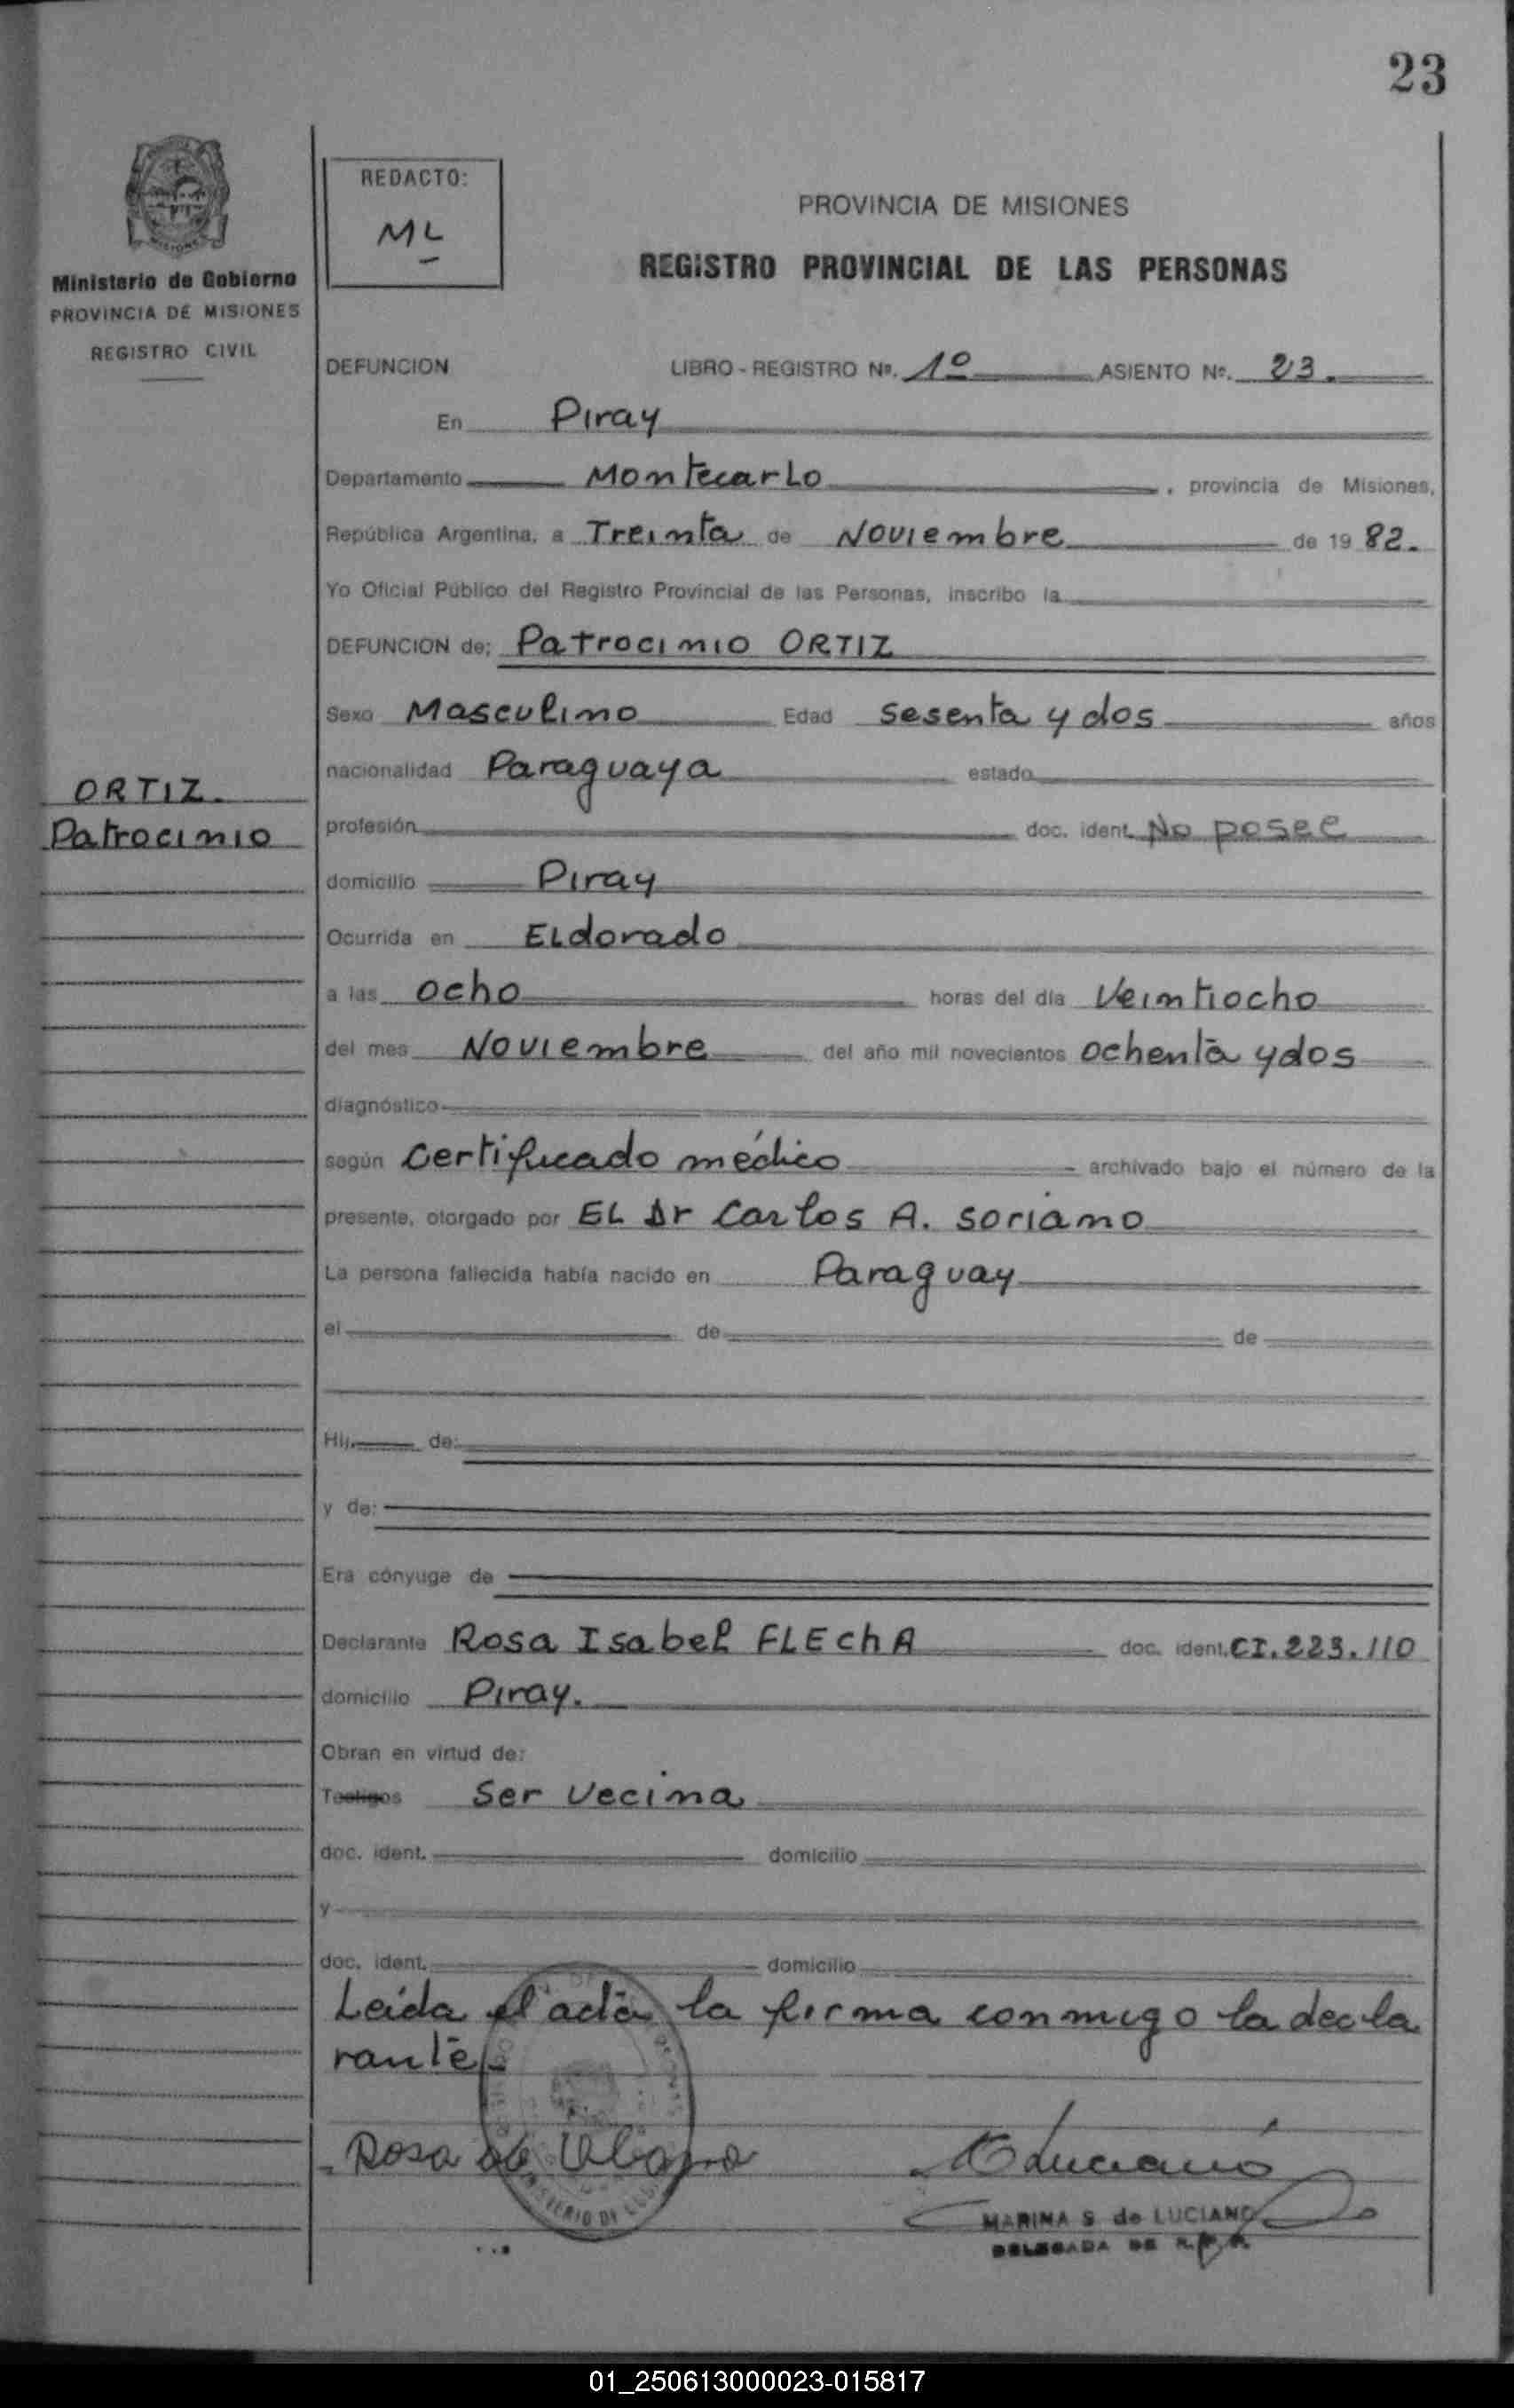 23
Ministerio de Gobierno
PROVINCIA DE MISIONES
REGISTRO CIVIL
REDACTO:
ML
PROVINCIA DE MISIONES
REGISTRO PROVINCIAL DE LAS PERSONAS
DEFUNCION LIBRO - REGISTRO Nº. 1º ASIENTO Nº. 23.
En Piray
Departamento Montecarlo, provincia de Misiones,
República Argentina, a Treinta de Noviembre de 1982.
Yo Oficial Público del Registro Provincial de las Personas, inscribo la
DEFUNCION de: Patrocinio ORTIZ
Sexo Masculino Edad sesenta y dos años
nacionalidad Paraguaya estado
ORTIZ.
Patrocinio
profesión doc. ident. No posee
domicilio Piray
Ocurrida en ELdorado
a las ocho horas del día Veintiocho
del mes Noviembre del año mil novecientos ochenta y dos
diagnóstico
según Certificado médico archivado bajo el número de la
presente, otorgado por EL Dr Carlos A. soriano
La persona fallecida había nacido en Paraguay
el de de
Hij de:
y de:
Era cónyuge de
Declarante Rosa Isabel FLEchA doc. ident. CI. 223.110
domicilio Piray.
Obran en virtud de:
Testigos Ser vecina
doc. ident. domicilio
y
doc. ident. domicilio
Leída el acta la firma conmigo la decla
rante
Rosa de
Luciano
MARINA S de LUCIANO
DELEGADA DE R.P.P.
01_250613000023-015817